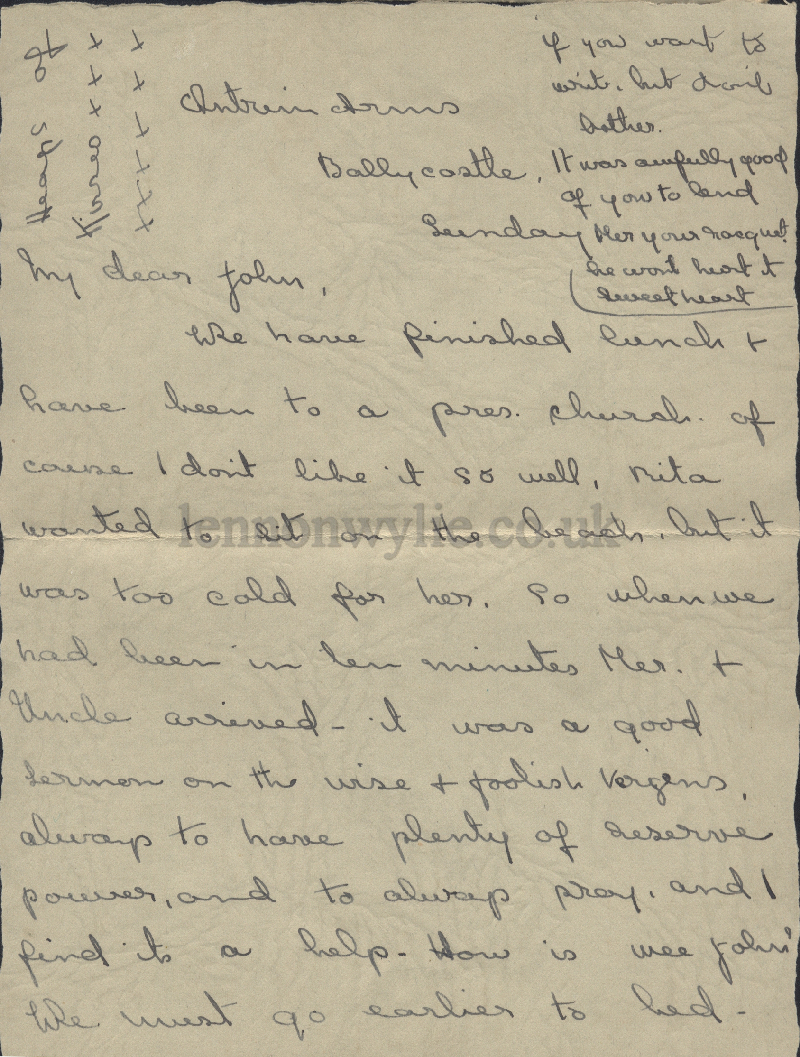 Heaps of
Kisses x x x
x x x x x x
Antrim Arms
Ballycastle,
Sunday
if you want to
write. but don't
bother.
It was awfully good
of you to lend
Mer your racquet.
she wont heart it
sweetheart
My dear John,
We have finished lunch &
have been to a pres. church. of
cause I don't like it so well, Rita
wanted to sit on the beach. but it
was too cold for her. So when we
had been in ten minutes Mer. &
Uncle arrived - it was a good
sermon on the wise & foolish Vergens,
always to have plenty of reserve
power, and to always pray. and I
find its a help - How is wee John?
We must go earlier to bed -
lennonwylie.co.uk